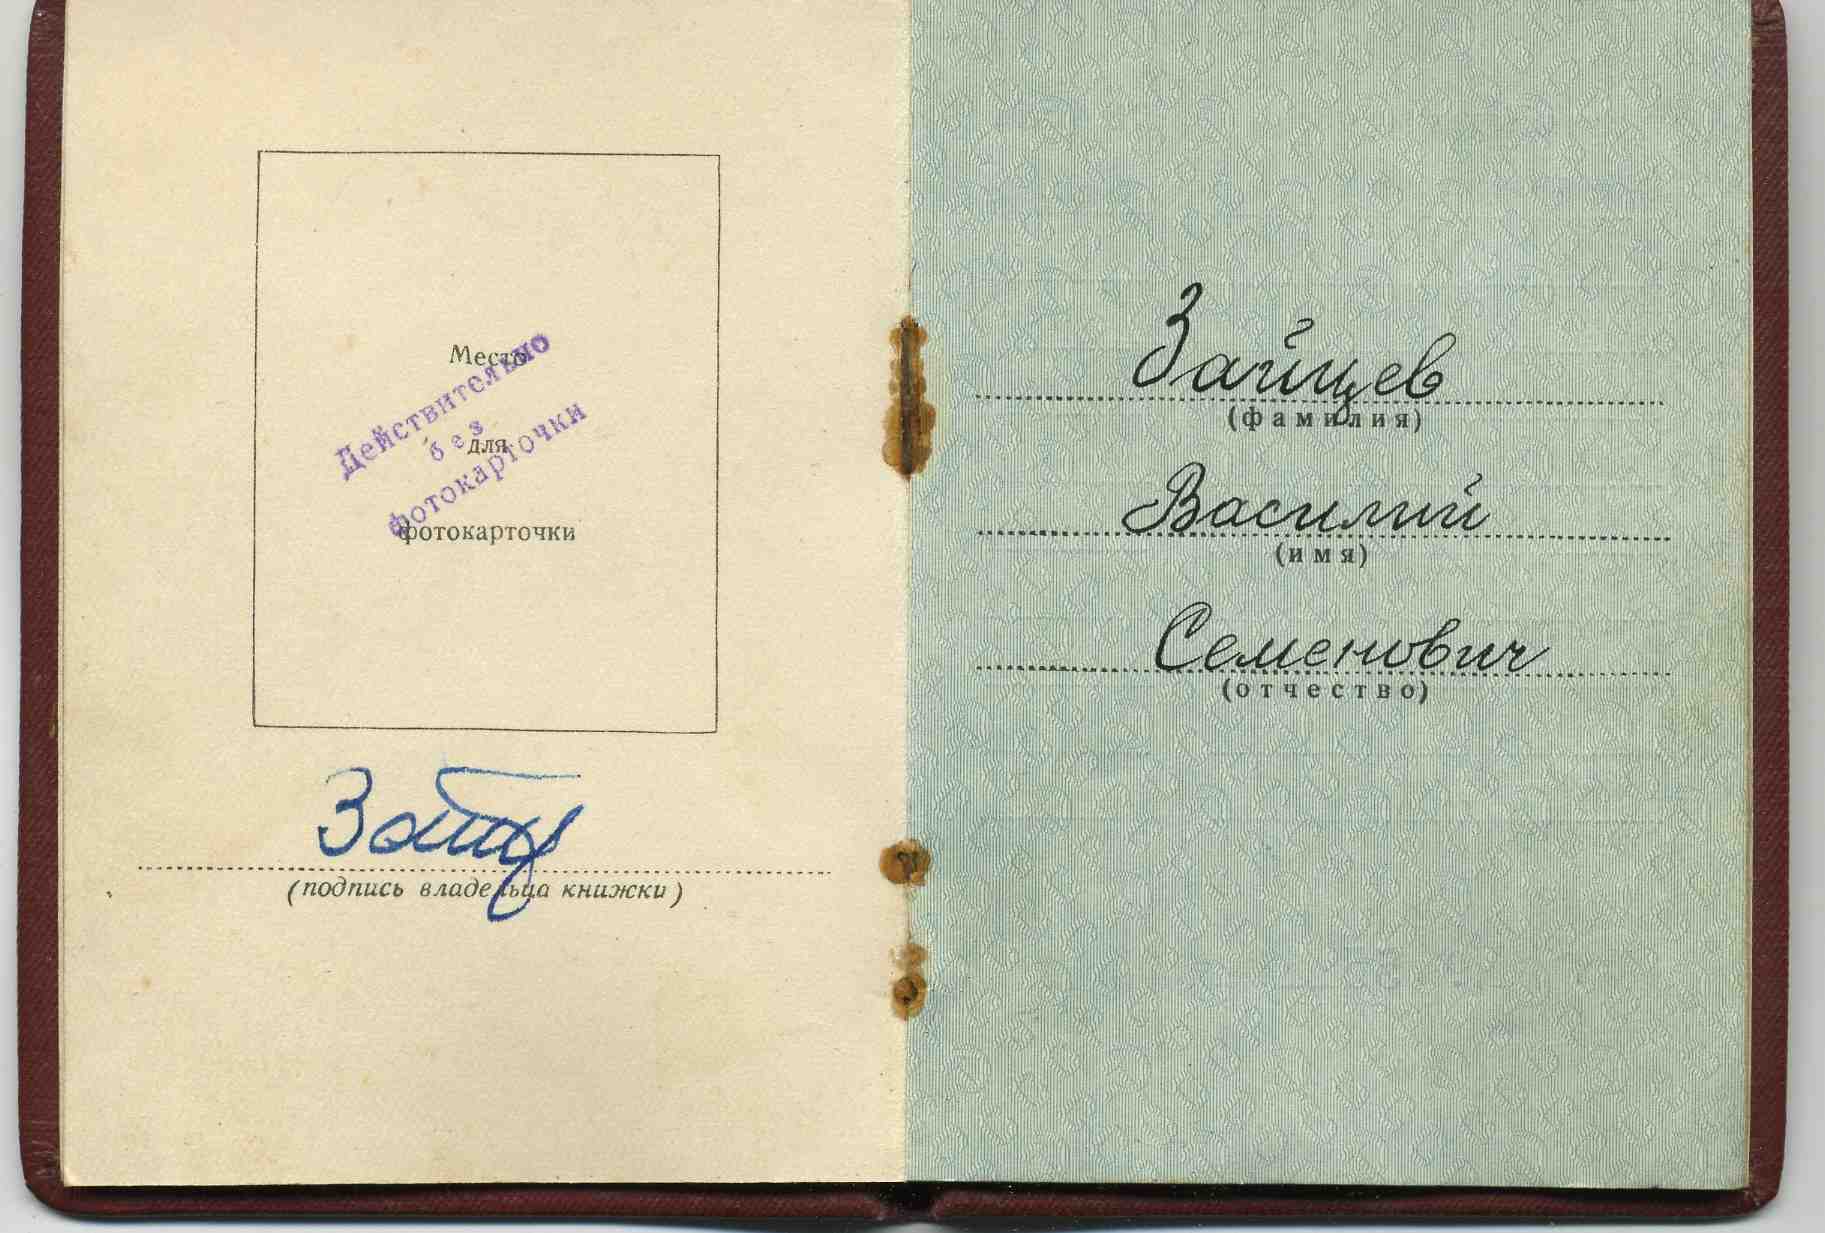 Место
для
фотокарточки
Действительно
без
фотокарточки
Зайц
(подпись владельца книжки)
Зайцев
(фамилия)
Василий
(имя)
Семенович
(отчество)